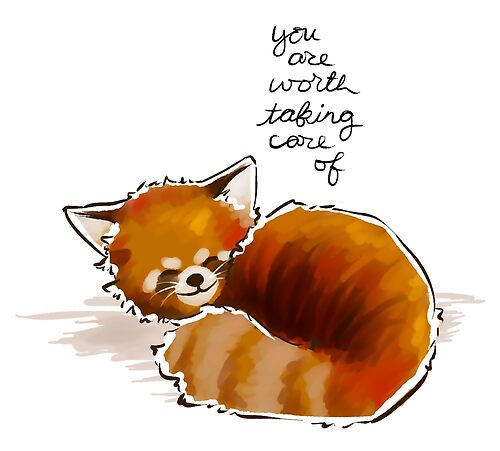 you
are
worth
taking
care
of